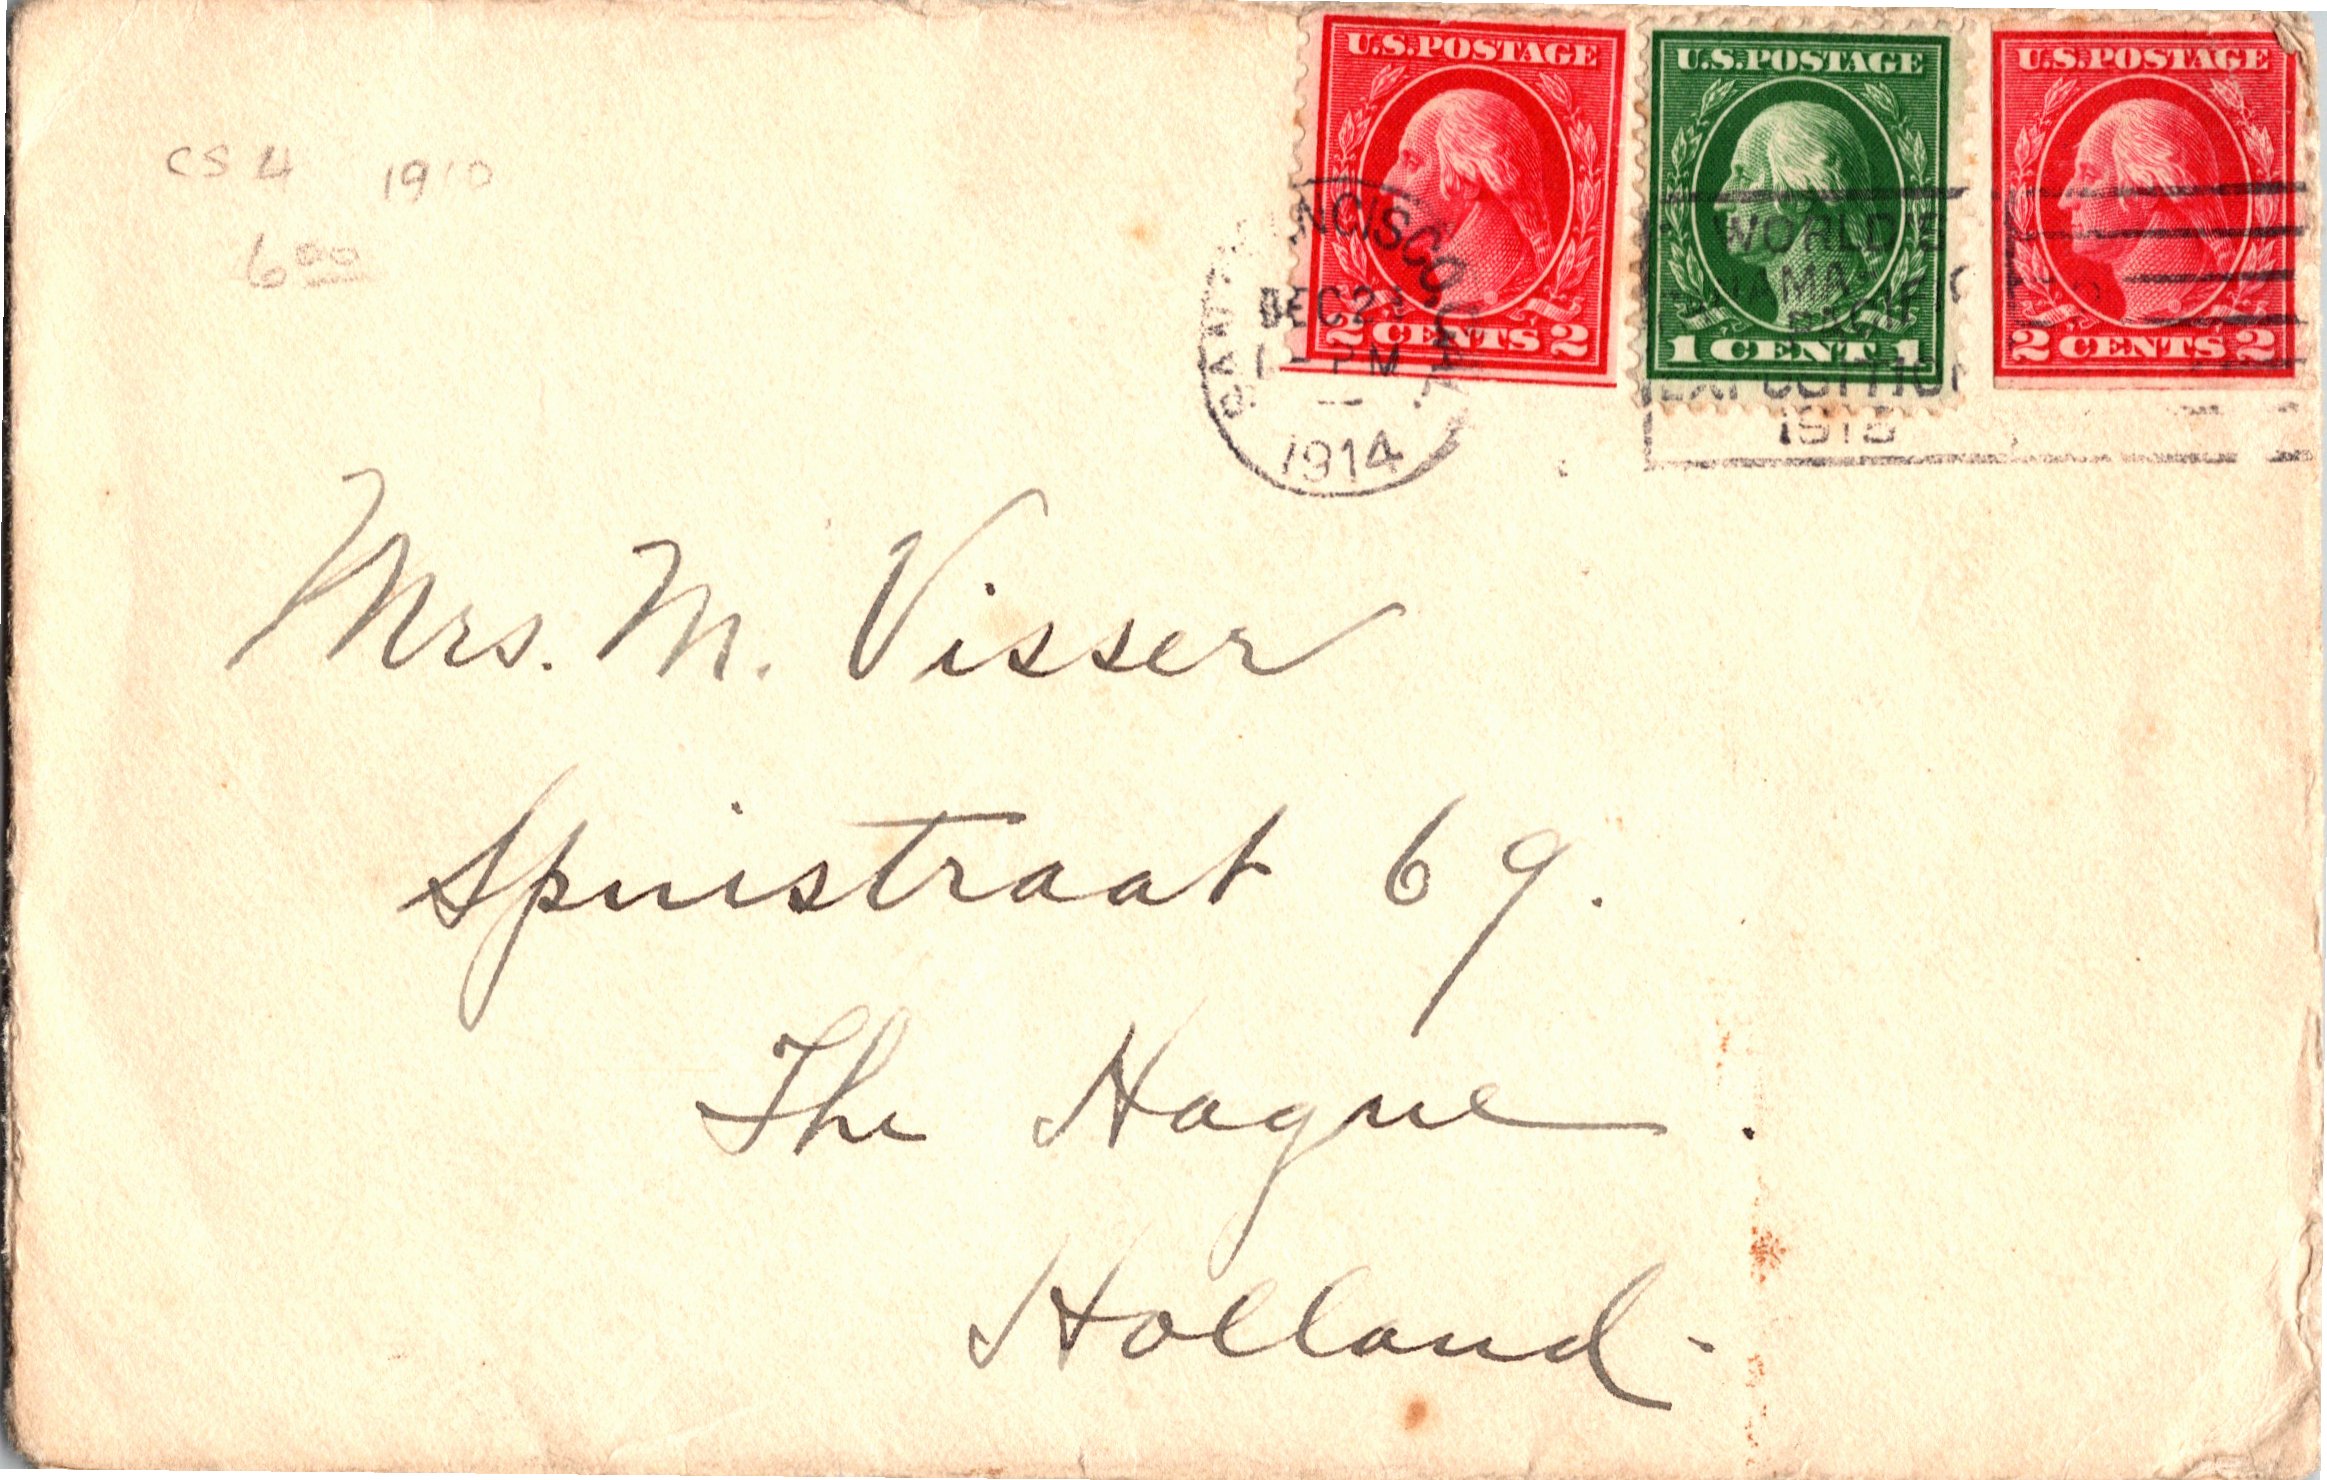 CS 4 1910
6 00
U.S.POSTAGE
2 CENTS 2
U.S.POSTAGE
1 CENT 1
U.S.POSTAGE
2 CENTS 2
SAN FRANCISCO, CAL.
DEC
PM
1914
WORLD'S
PANAMA PACIFIC
EXPOSITION
1915
Mrs. M. Visser
Spuistraat 69.
The Hague.
Holland-